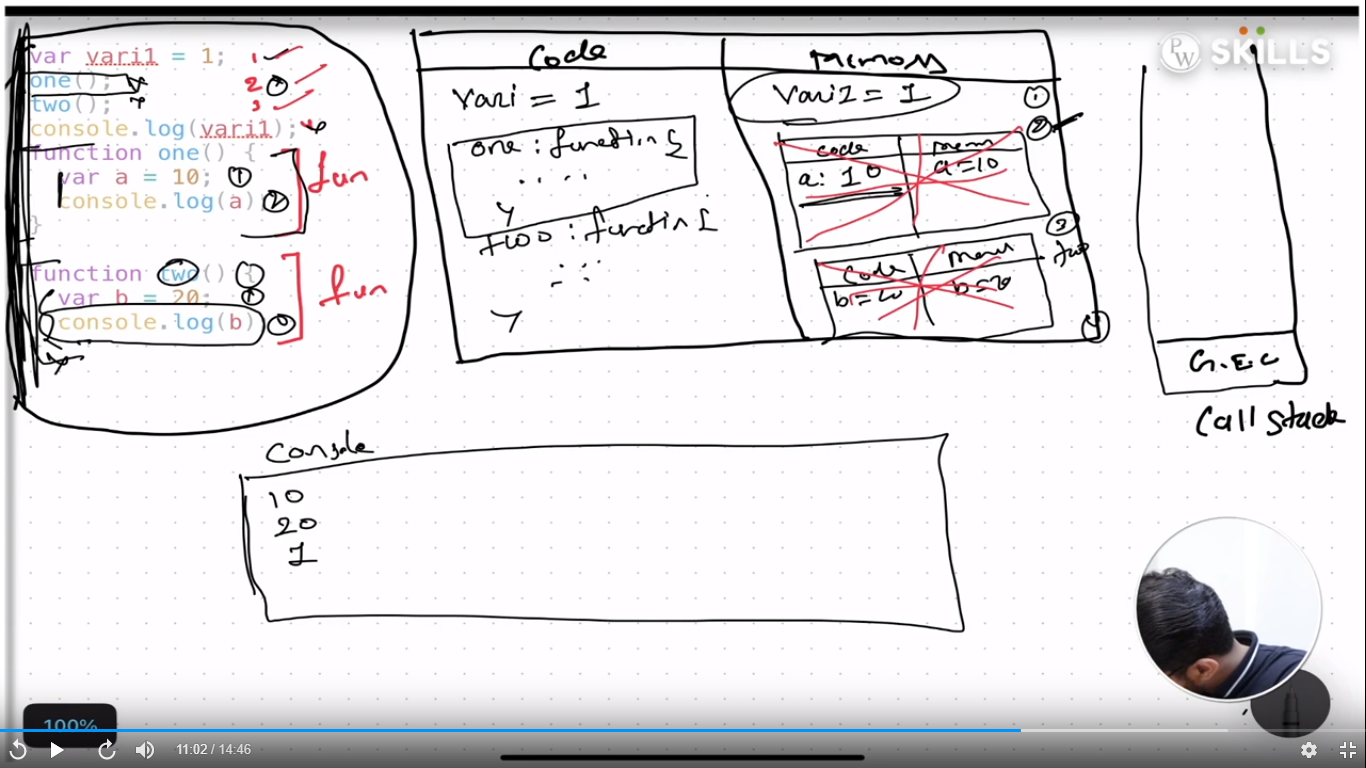 var vari1 = 1; 1
one(); 2
two(); 3
console.log(vari1); 4
function one() {
var a = 10; 1
console.log(a) 2
}
fun
function two() {
var b = 20;
console.log(b)
fun
Code
Memory
Vari = 1
one : function {
. . . .
two : function {
Vari1 = 1
1
2
code
mem
a: 10
a=10
3
two
code
mem
b=20
b=20
4
G.E.C
Call stack
Console
10
20
1
PW SKILLS
100%
11:02 / 14:46